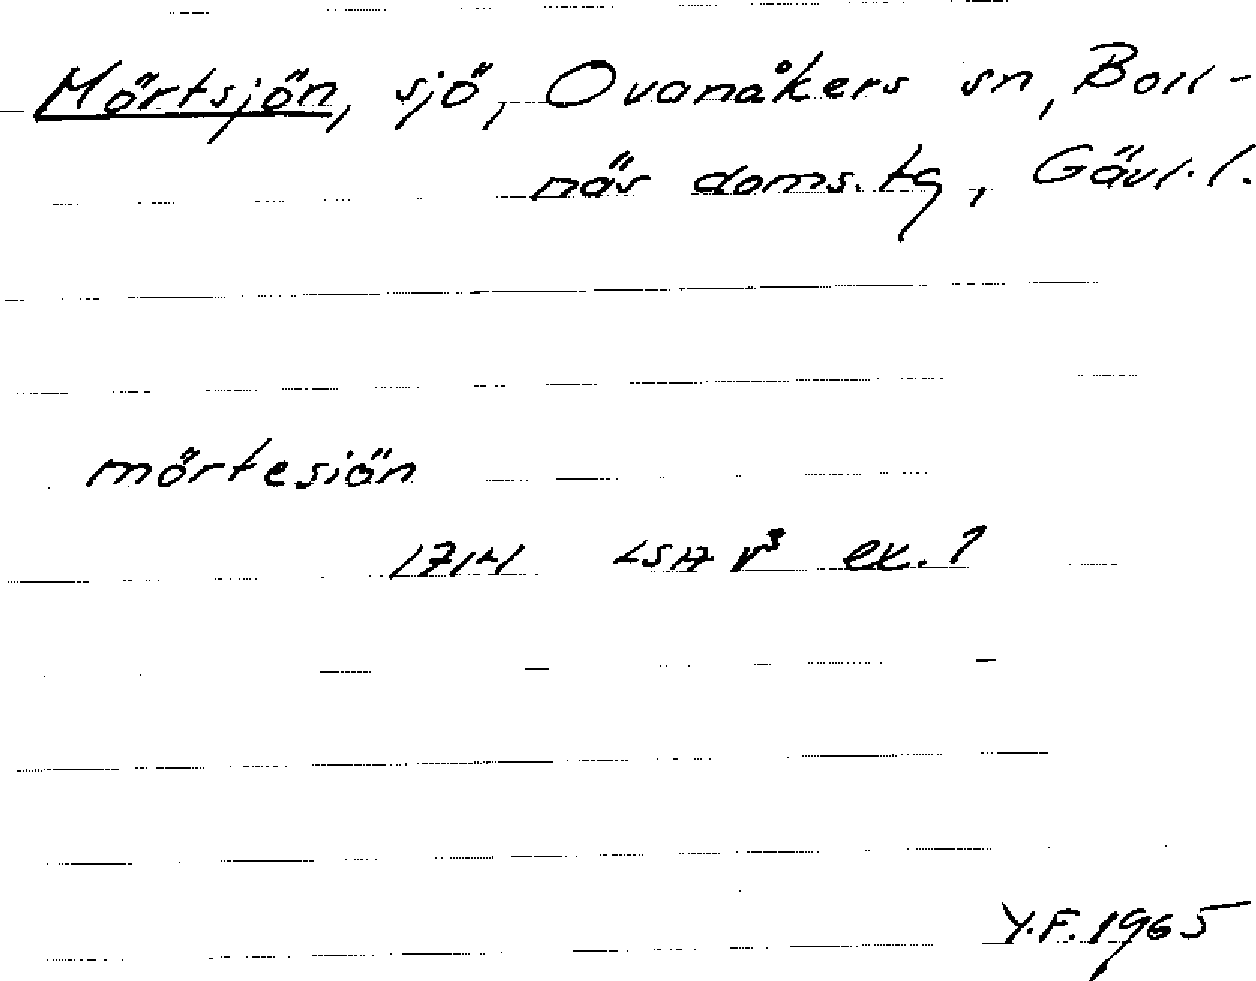 Mörtsjön, sjö, Ovanåkers sn, Boll-
näs doms.tg, Gävl.l.
mörtesiön
1714 LSA V³ ex. 1
Y.F. 1965